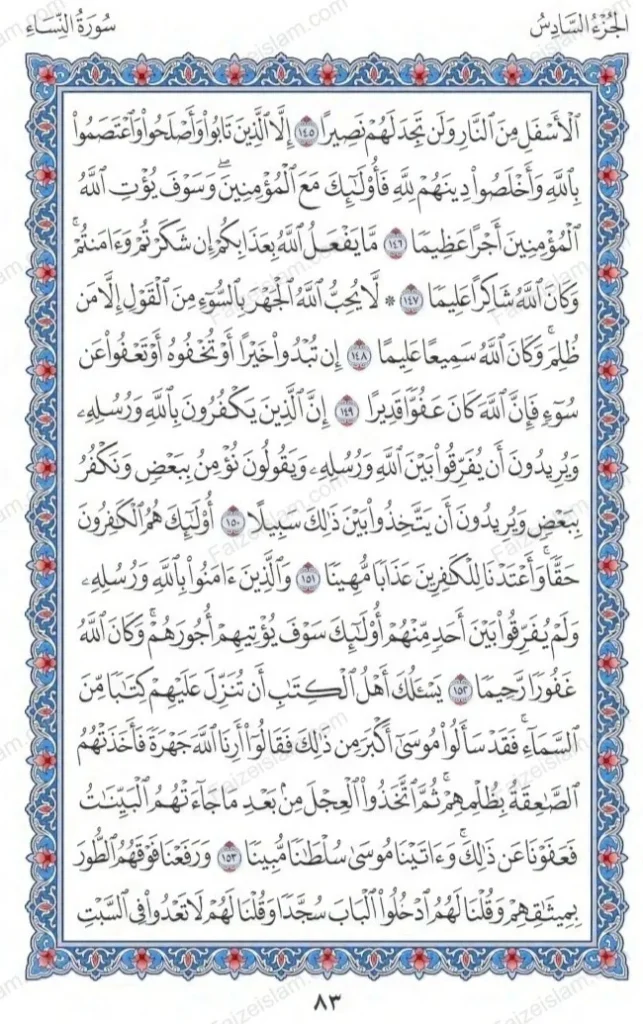 سُورَةُ النِّسَاءِ
الجُزْءُ السَّادِسُ
ٱلۡأَسۡفَلِ مِنَ ٱلنَّارِ وَلَن تَجِدَ لَهُمۡ نَصِيرًا ١٤٥ إِلَّا ٱلَّذِينَ تَابُواْ وَأَصۡلَحُواْ وَٱعۡتَصَمُواْ
بِٱللَّهِ وَأَخۡلَصُواْ دِينَهُمۡ لِلَّهِ فَأُوْلَٰٓئِكَ مَعَ ٱلۡمُؤۡمِنِينَۖ وَسَوۡفَ يُؤۡتِ ٱللَّهُ
ٱلۡمُؤۡمِنِينَ أَجۡرًا عَظِيمٗا ١٤٦ مَّا يَفۡعَلُ ٱللَّهُ بِعَذَابِكُمۡ إِن شَكَرۡتُمۡ وَءَامَنتُمۡۚ
وَكَانَ ٱللَّهُ شَاكِرًا عَلِيمٗا ١٤٧ ۞ لَّا يُحِبُّ ٱللَّهُ ٱلۡجَهۡرَ بِٱلسُّوٓءِ مِنَ ٱلۡقَوۡلِ إِلَّا مَن
ظُلِمَۚ وَكَانَ ٱللَّهُ سَمِيعًا عَلِيمًا ١٤٨ إِن تُبۡدُواْ خَيۡرًا أَوۡ تُخۡفُوهُ أَوۡ تَعۡفُواْ عَن
سُوٓءٖ فَإِنَّ ٱللَّهَ كَانَ عَفُوّٗا قَدِيرًا ١٤٩ إِنَّ ٱلَّذِينَ يَكۡفُرُونَ بِٱللَّهِ وَرُسُلِهِۦ
وَيُرِيدُونَ أَن يُفَرِّقُواْ بَيۡنَ ٱللَّهِ وَرُسُلِهِۦ وَيَقُولُونَ نُؤۡمِنُ بِبَعۡضٖ وَنَكۡفُرُ
بِبَعۡضٖ وَيُرِيدُونَ أَن يَتَّخِذُواْ بَيۡنَ ذَٰلِكَ سَبِيلًا ١٥٠ أُوْلَٰٓئِكَ هُمُ ٱلۡكَٰفِرُونَ
حَقّٗاۚ وَأَعۡتَدۡنَا لِلۡكَٰفِرِينَ عَذَابٗا مُّهِينٗا ١٥١ وَٱلَّذِينَ ءَامَنُواْ بِٱللَّهِ وَرُسُلِهِۦ
وَلَمۡ يُفَرِّقُواْ بَيۡنَ أَحَدٖ مِّنۡهُمۡ أُوْلَٰٓئِكَ سَوۡفَ يُؤۡتِيهِمۡ أُجُورَهُمۡۚ وَكَانَ ٱللَّهُ
غَفُورٗا رَّحِيمٗا ١٥٢ يَسۡـَٔلُكَ أَهۡلُ ٱلۡكِتَٰبِ أَن تُنَزِّلَ عَلَيۡهِمۡ كِتَٰبٗا مِّنَ
ٱلسَّمَآءِۚ فَقَدۡ سَأَلُواْ مُوسَىٰٓ أَكۡبَرَ مِن ذَٰلِكَ فَقَالُوٓاْ أَرِنَا ٱللَّهَ جَهۡرَةٗ فَأَخَذَتۡهُمُ
ٱلصَّٰعِقَةُ بِظُلۡمِهِمۡۚ ثُمَّ ٱتَّخَذُواْ ٱلۡعِجۡلَ مِنۢ بَعۡدِ مَا جَآءَتۡهُمُ ٱلۡبَيِّنَٰتُ
فَعَفَوۡنَا عَن ذَٰلِكَۚ وَءَاتَيۡنَا مُوسَىٰ سُلۡطَٰنٗا مُّبِينٗا ١٥٣ وَرَفَعۡنَا فَوۡقَهُمُ ٱلطُّورَ
بِمِيثَٰقِهِمۡ وَقُلۡنَا لَهُمُ ٱدۡخُلُواْ ٱلۡبَابَ سُجَّدٗا وَقُلۡنَا لَهُمۡ لَا تَعۡدُواْ فِي ٱلسَّبۡتِ
٨٣
Faizeislam.com